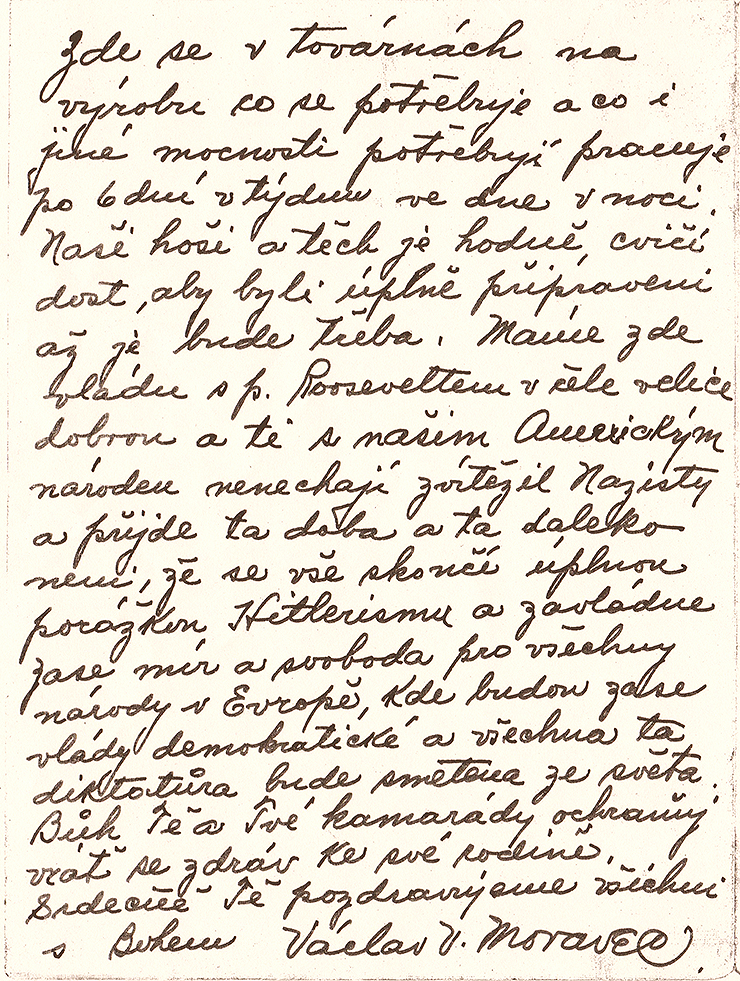 Zde se v továrnách na
výrobu co se potřebuje a co i
jiné mocnosti potřebují pracuje
po 6 dní v týdnu ve dne v noci.
Naši hoši a těch je hodně, cvičí
dost, aby byli úplně připraveni
až je bude třeba. Máme zde
vládu s p. Rooseveltem v čele velice
dobrou a ti s našim Americkým
národem nenechají zvítěžil Nazisty
a přijde ta doba a ta daleko
neni, že se vše skončí úplnou
porážkou Hitlerismu a zavládne
zase mír a svoboda pro všechny
národy v Evropě, kde budou zase
vlády demokratické a všechna ta
diktatůra bude smetena ze světa.
Bůh Tě a Tvé kamarády ochraňuj
vrať se zdráv ke své rodině.
Srdečně Tě pozdravujeme všichni
s Bohem Václav V. Moravec.